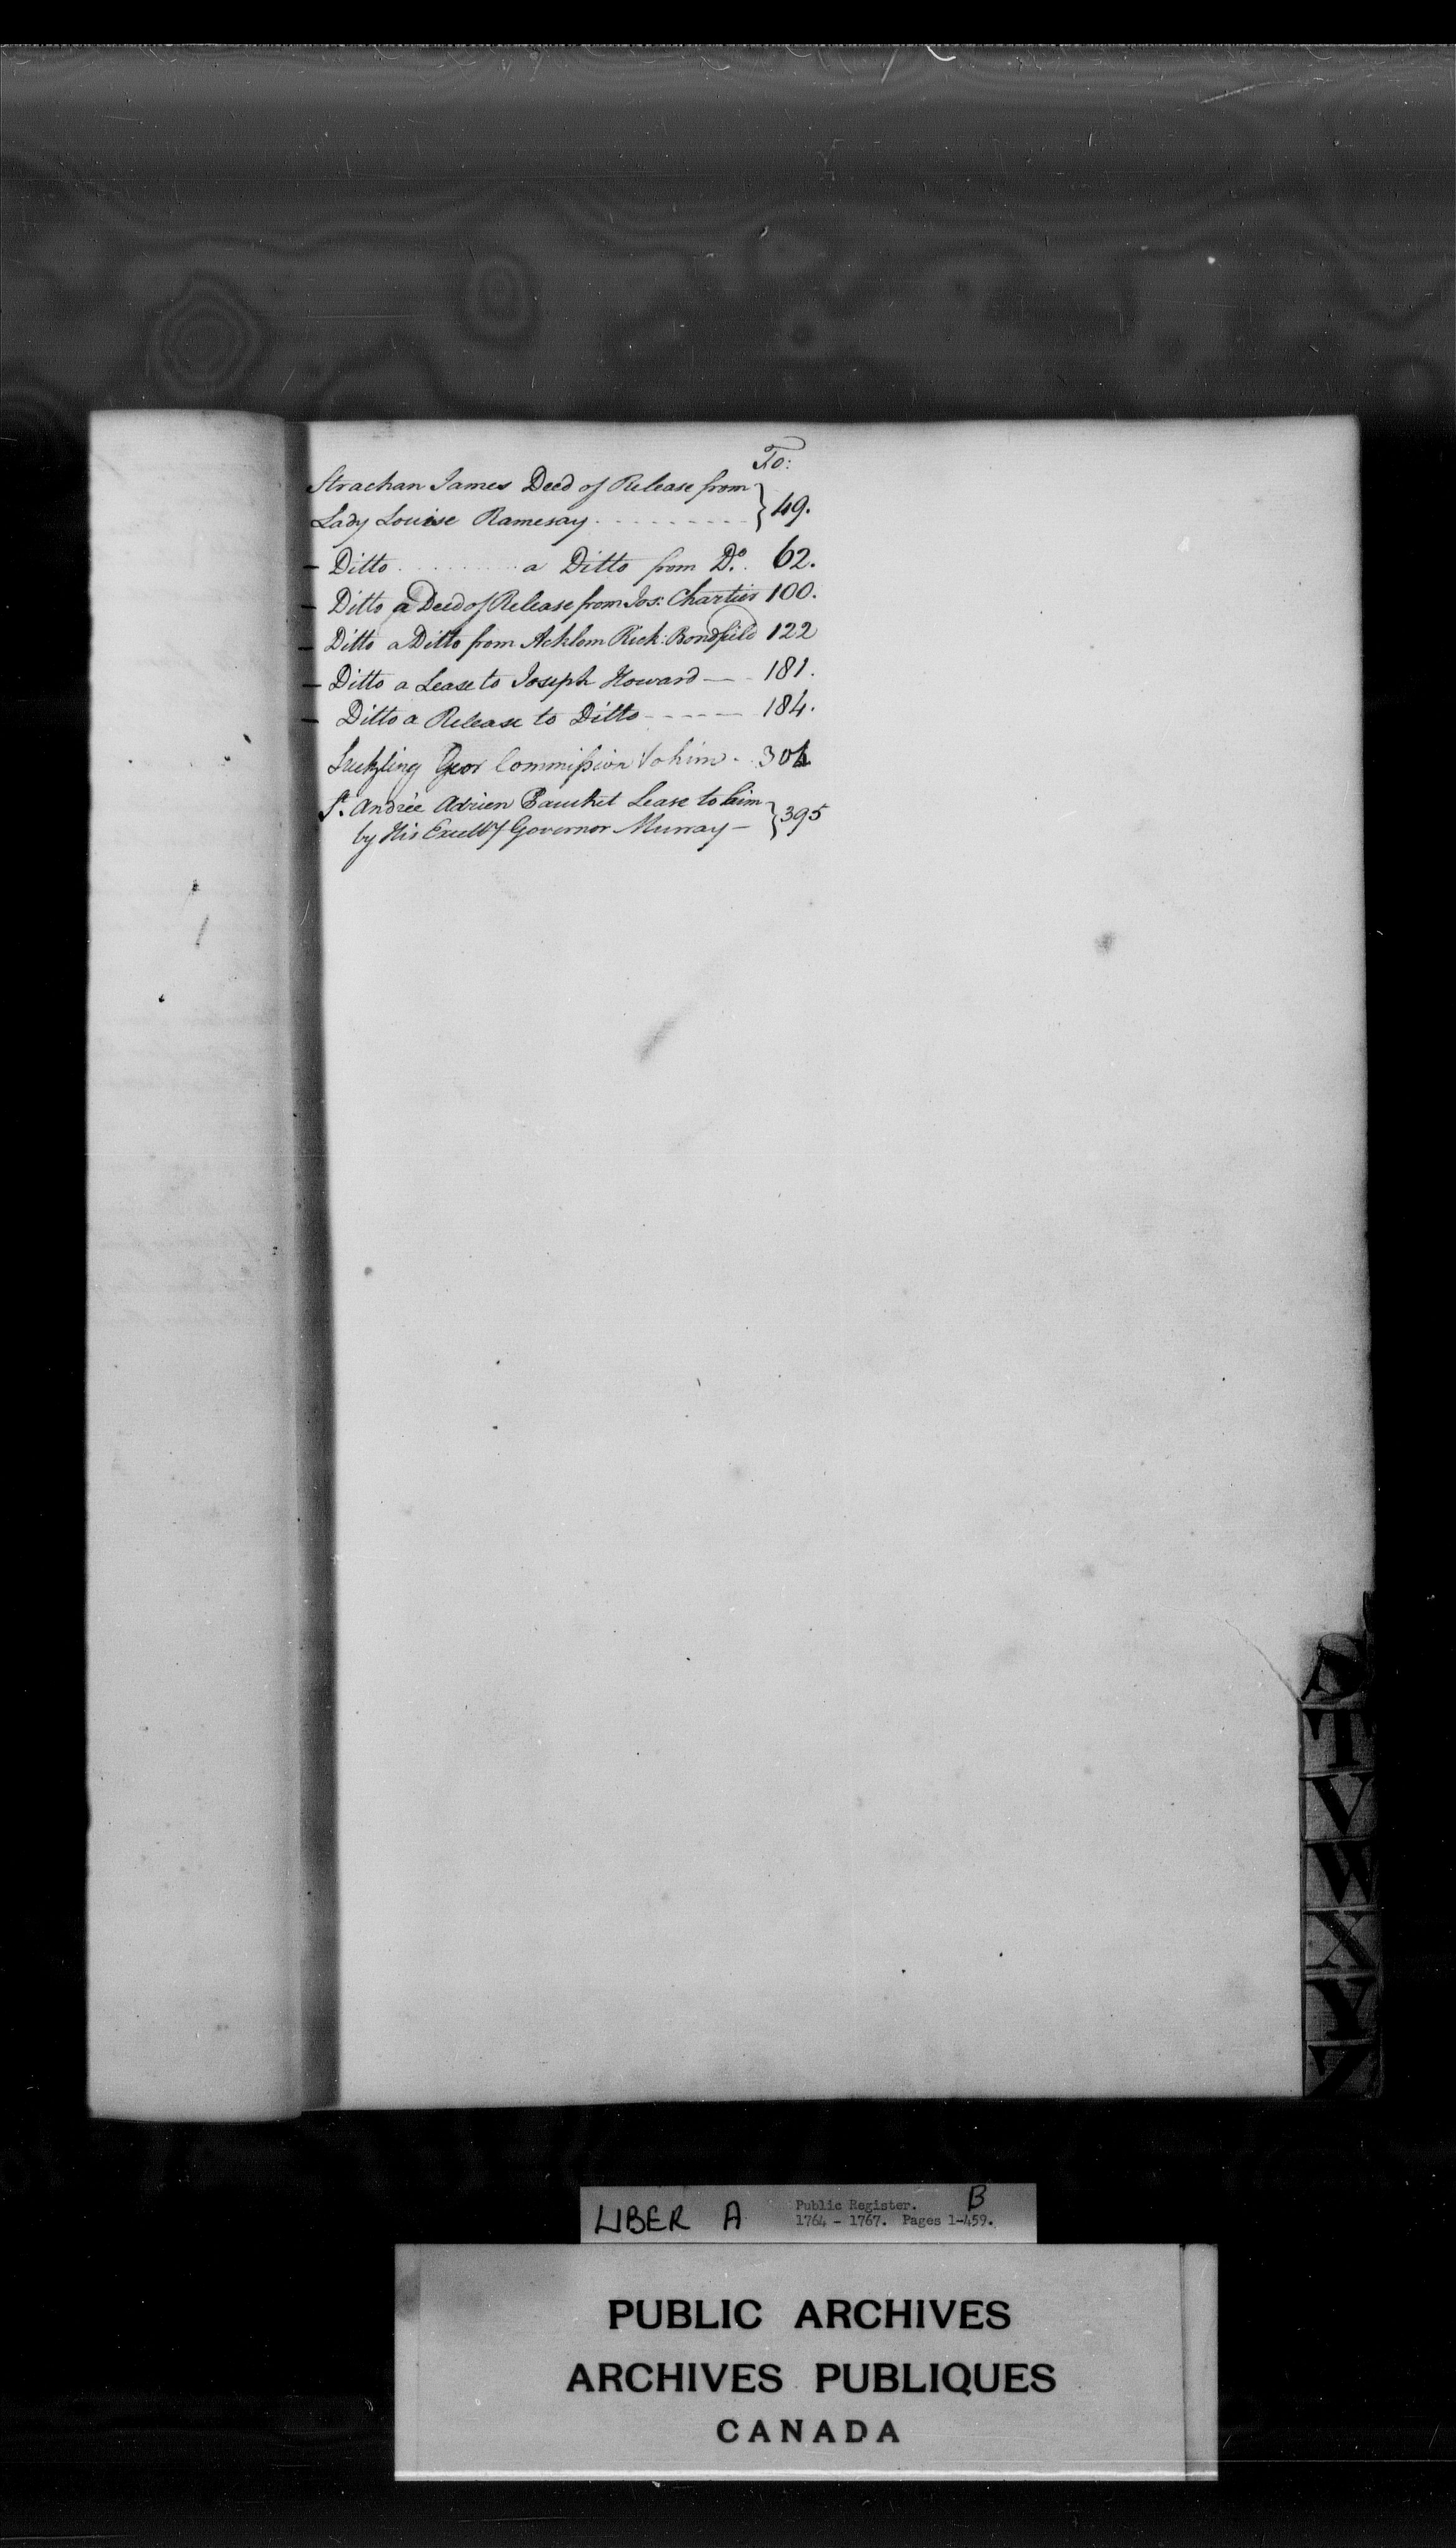 Fo:
Strachan James Deed of Release from
Lady Louise Ramesay . . . . . . . . . } 49.
– Ditto . . . . . . . . . a Ditto from Do. 62.
– Ditto a Deed of Release from Jos: Chartier 100.
– Ditto a Ditto from Acklom Rich: Bondfield 122
– Ditto a Lease to Joseph Howard — - 181.
– Ditto a Release to Ditto - - - - - 184.
Suckling Geor Commission to him - 304
St. Andrée Adrien Lease to him
by His Excelly Governor Murray – } 395
S
T
V
W
X
Y
Z
LIBER A Public Register. B
1764 - 1767. Pages 1-459.
PUBLIC ARCHIVES
ARCHIVES PUBLIQUES
CANADA